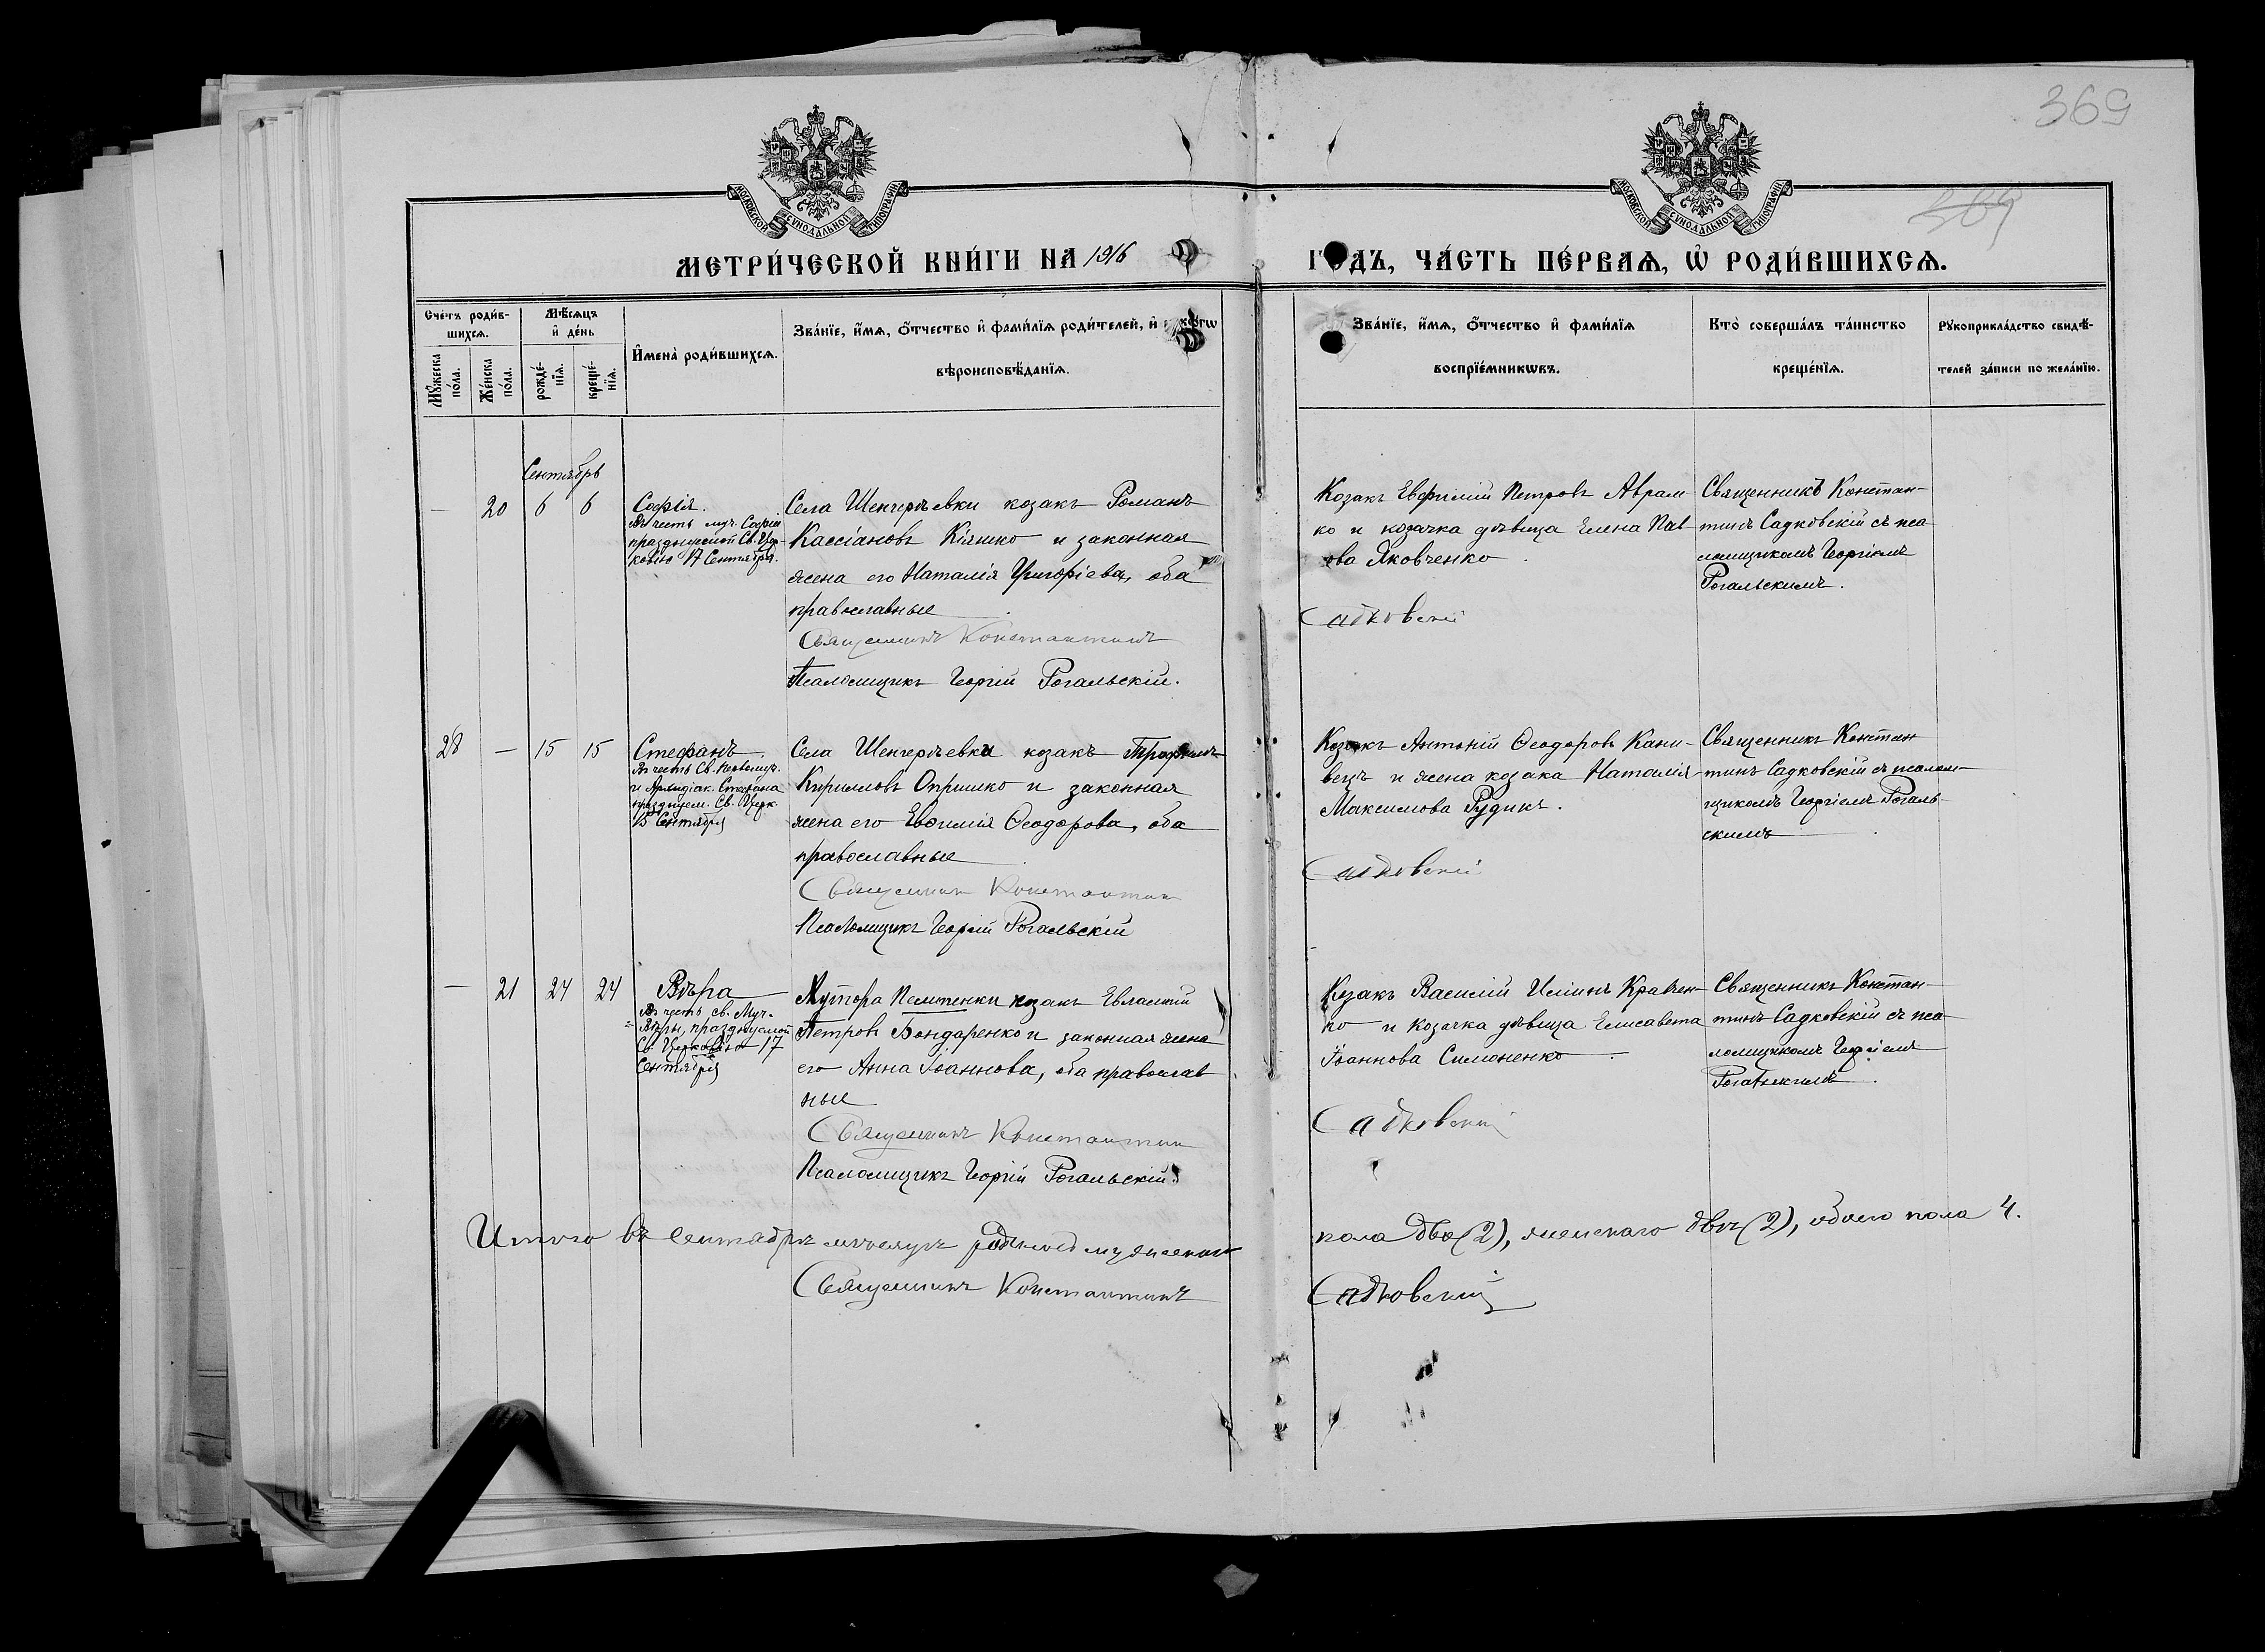 369
369
МОСКОВСКОЙ СѴНОДАЛЬНОЙ ТИПОГРАФІИ
МОСКОВСКОЙ СѴНОДАЛЬНОЙ ТИПОГРАФІИ
МЕТРИ́ЧЕСКОЙ КНИ́ГИ НА 1916 ГОДЪ, ЧА́СТЬ ПЕ́РВАѦ, Ѡ҆ РОДИ́ВШИХСѦ.
Сче́тъ роди́в-
шихсѧ.
Мꙋ́жеска по́ла.
Же́нска по́ла.
Мѣ́сѧцъ
и҆ де́нь
рожде́-нїѧ.
креще́-нїѧ.
И҆мена̀ роди́вшихсѧ.
Зва́нїе, и҆́мѧ, ѻ҆́тчество и҆ фами́лїѧ роди́телей, и҆
вѣроисповѣ́данїѧ.
Зва́нїе, и҆́мѧ, ѻ҆́тчество и҆ фами́лїѧ
воспрїе́мникѡвъ.
Кто̀ соверша́лъ та́инство
креще́нїѧ.
Рꙋкоприкла́дство свидѣ́-
телей за́писи по жела́нїю.
Сентябрь
— 20 6 6
Софія.
Въ честь муч. Софіи
празднуемой Св. Цер-
ковію 17 Сентября.
Села Шенгерѣевки козакъ Романъ
Кассіановъ Кіяшко и законная
жена его Наталія Григоріева, оба
православные
Священникъ Константинъ Садковскій
Псаломщикъ Георгій Рогальскій.
Козакъ Евфимій Петровъ Аврам-
ко и козачка дѣвица Елена Пав
лова Яковченко.
Священникъ Констан-
тинъ Садковскій съ пса
ломщикомъ Георгіемъ
Рогальскимъ.
28 — 15 15
Стефанъ.
Въ честь Св. Первомуч.
и Архидіак. Стефана
празднуем. Св. Церк.
15 Сентября
Села Шенгерѣевки козакъ Трофимъ
Кирилловъ Опришко и законная
жена его Евфимія Ѳеодорова, оба
православные
Священникъ Константинъ Садковскій
Псаломщикъ Георгій Рогальскій
Козакъ Антоній Ѳеодоровъ Кани-
вецъ и жена козака Наталія
Максимова Рудикъ.
Священникъ Констан
тинъ Садковскій съ псалом-
щикомъ Георгіемъ Рогаль-
скимъ
— 21 24 24
Вѣра
Въ честь св. Муч.
Вѣры, празднуемой
Св. Церковію 17
Сентября
Хутора козакъ Евлампій
Петровъ Бондаренко и законная жена
его Анна Іоаннова, оба православ
ные
Священникъ Константинъ Садковскій
Псаломщикъ Георгій Рогальскій.
Козакъ Василій Ильинъ Кравчен-
ко и козачка дѣвица Елисавета
Іоаннова Симоненко.
Священникъ Констан-
тинъ Садковскій съ пса
ломщикомъ Георгіемъ
Рогальскимъ.
Итого въ Сентябрѣ мѣсяцѣ родилось мужеского пола два (2), женскаго двѣ (2), обоего пола 4.
Священникъ Константинъ Садковскій